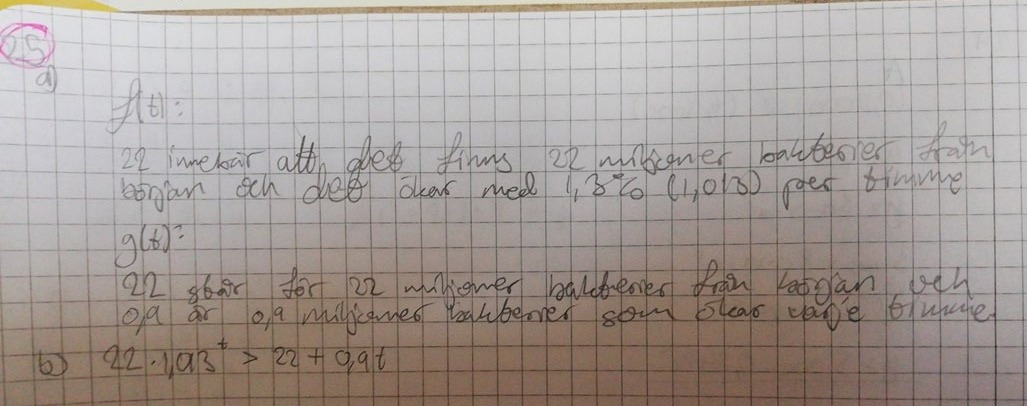 25
a)
f(t):
22 innebär att det finns 22 miljoner bakterier från
början och det ökar med 1,3% (1,013) per timme
g(t):
22 står för 22 miljoner bakterier från början och
0,9 är 0,9 miljoner bakterier som ökar varje timme.
b) 22·1,013^t > 22 + 0,9t